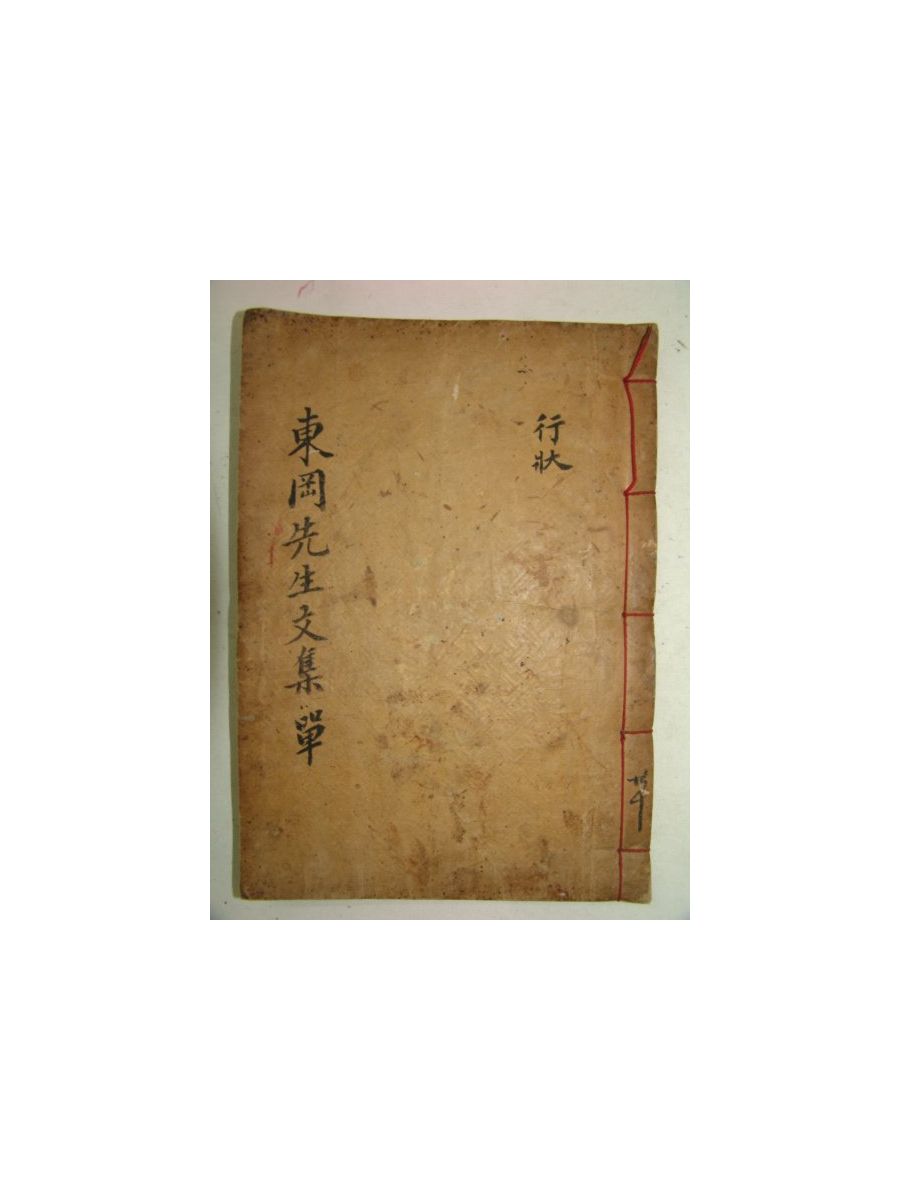 行狀
東岡先生文集 單